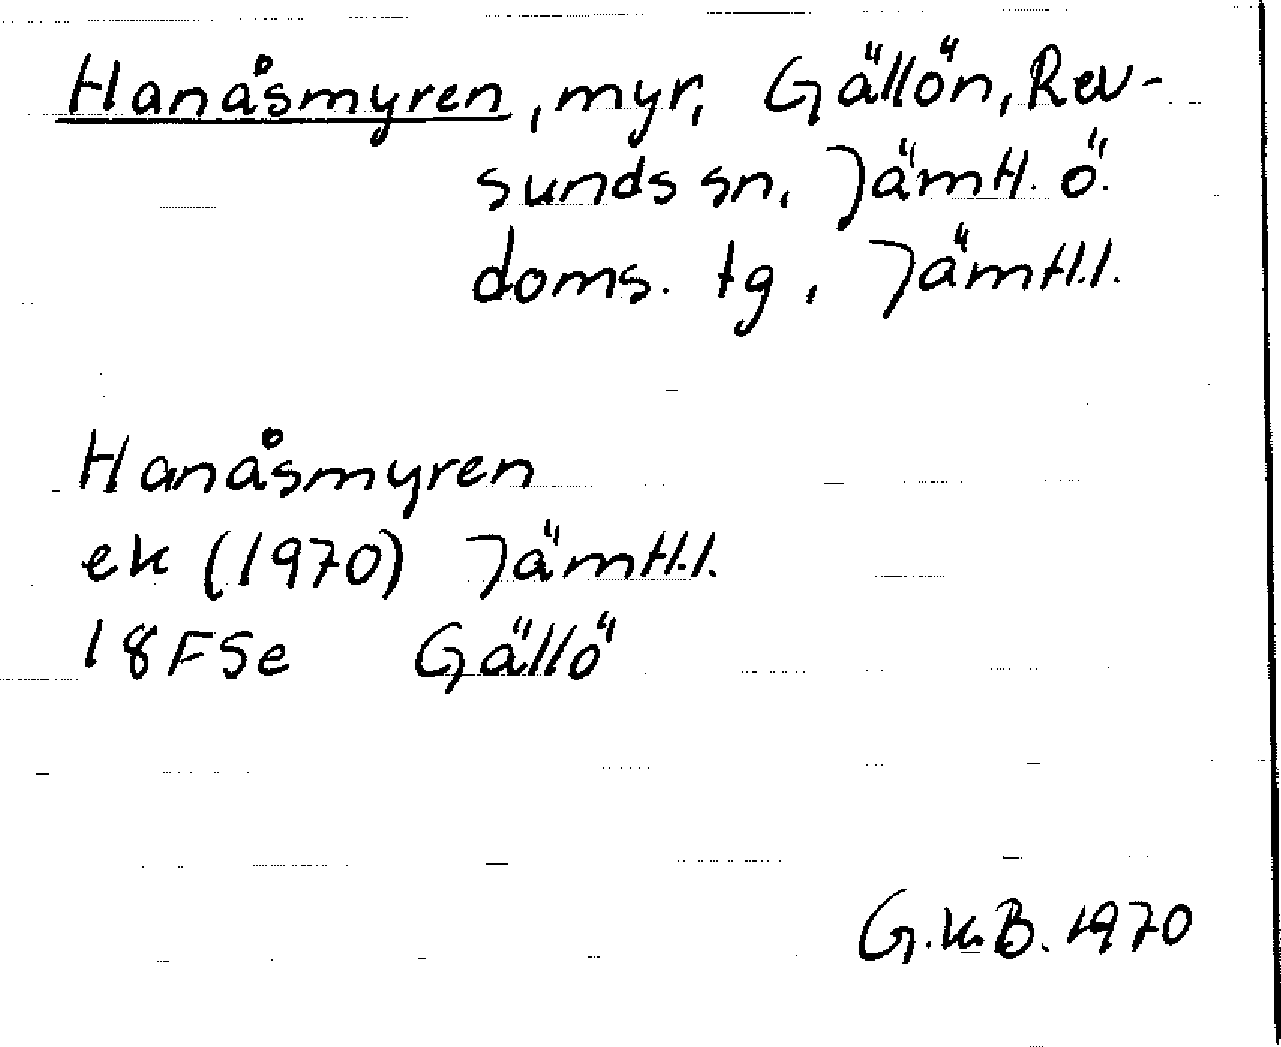 Hanåsmyren, myr, Gällön, Rev-
sunds sn, Jämtl. ö.
doms. tg, Jämtl.l.
Hanåsmyren
ek (1970) Jämtl.l.
18FSe Gällö
G.K.B. 1970